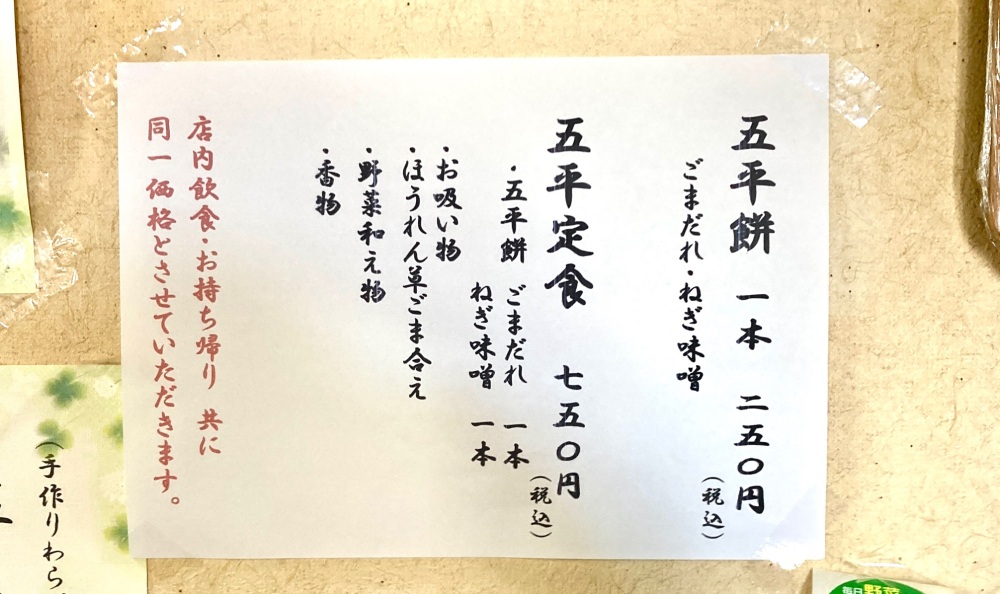 五平餅 一本 二五〇円
(税込)
ごまだれ・ねぎ味噌
五平定食 七五〇円
(税込)
・五平餅 ごまだれ 一本
ねぎ味噌 一本
・お吸い物
・ほうれん草ごま合え
・野菜和え物
・香物
店内飲食・お持ち帰り 共に
同一価格とさせていただきます。
(手作りわら
毎日野菜